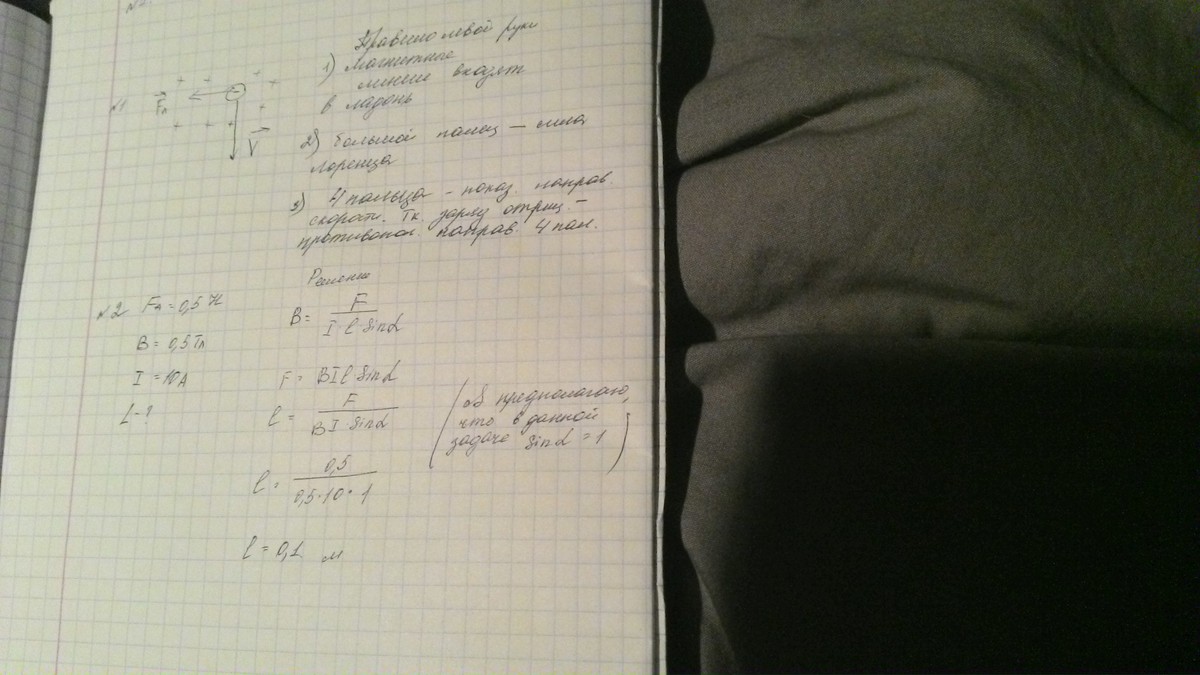 №1
Fл
V
Правило левой руки
1) Магнитные
линии входят
в ладонь
2) большой палец – сила
Лоренца
3) 4 пальца – показ. направ.
скорости. Тк. заряд отриц –
противопол. направ. 4 пал.
Решение
№2 Fл = 0,5 Н
B = 0,5 Тл
I = 10 А
L – ?
B = F / I · l · sinα
F = BIl · sinα
l = F / BI · sinα
(Я предполагаю,
что в данной
задаче sinα = 1)
l = 0,5 / 0,5 · 10 · 1
l = 0,1 м